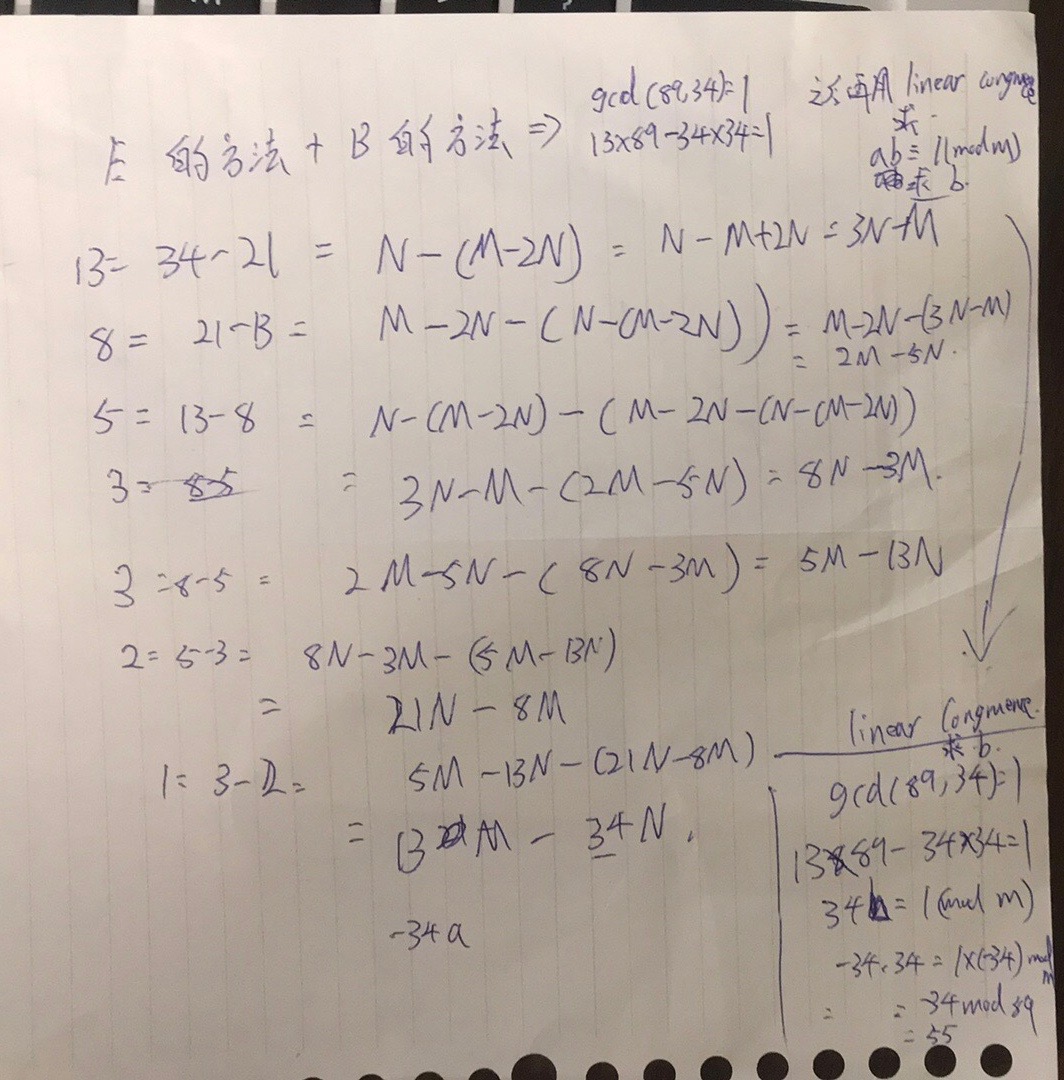 E 的方法 + B 的方法 ⇒ gcd(89,34)=1
13×89-34×34=1
之后再用 linear congruence
求
ab ≡ 1(mod m)
求 b.
13= 34-21 = N-(M-2N) = N-M+2N = 3N-M
8 = 21-13 = M-2N-(N-(M-2N)) = M-2N-(3N-M)
= 2M-5N.
5 = 13-8 = N-(M-2N)-(M-2N-(N-(M-2N))
3= 8-5 = 3N-M-(2M-5N) = 8N-3M.
3 =8-5 = 2M-5N-(8N-3M) = 5M-13N
2= 5-3= 8N-3M-(5M-13N)
= 21N-8M
1= 3-2= 5M-13N-(21N-8M)
= 13M - 34N.
-34a
linear Congruence.
求 b.
gcd(89,34)=1
13×89-34×34=1
34b = 1(mod m)
-34·34 = 1×(-34) mod m
= = -34 mod 89
= 55